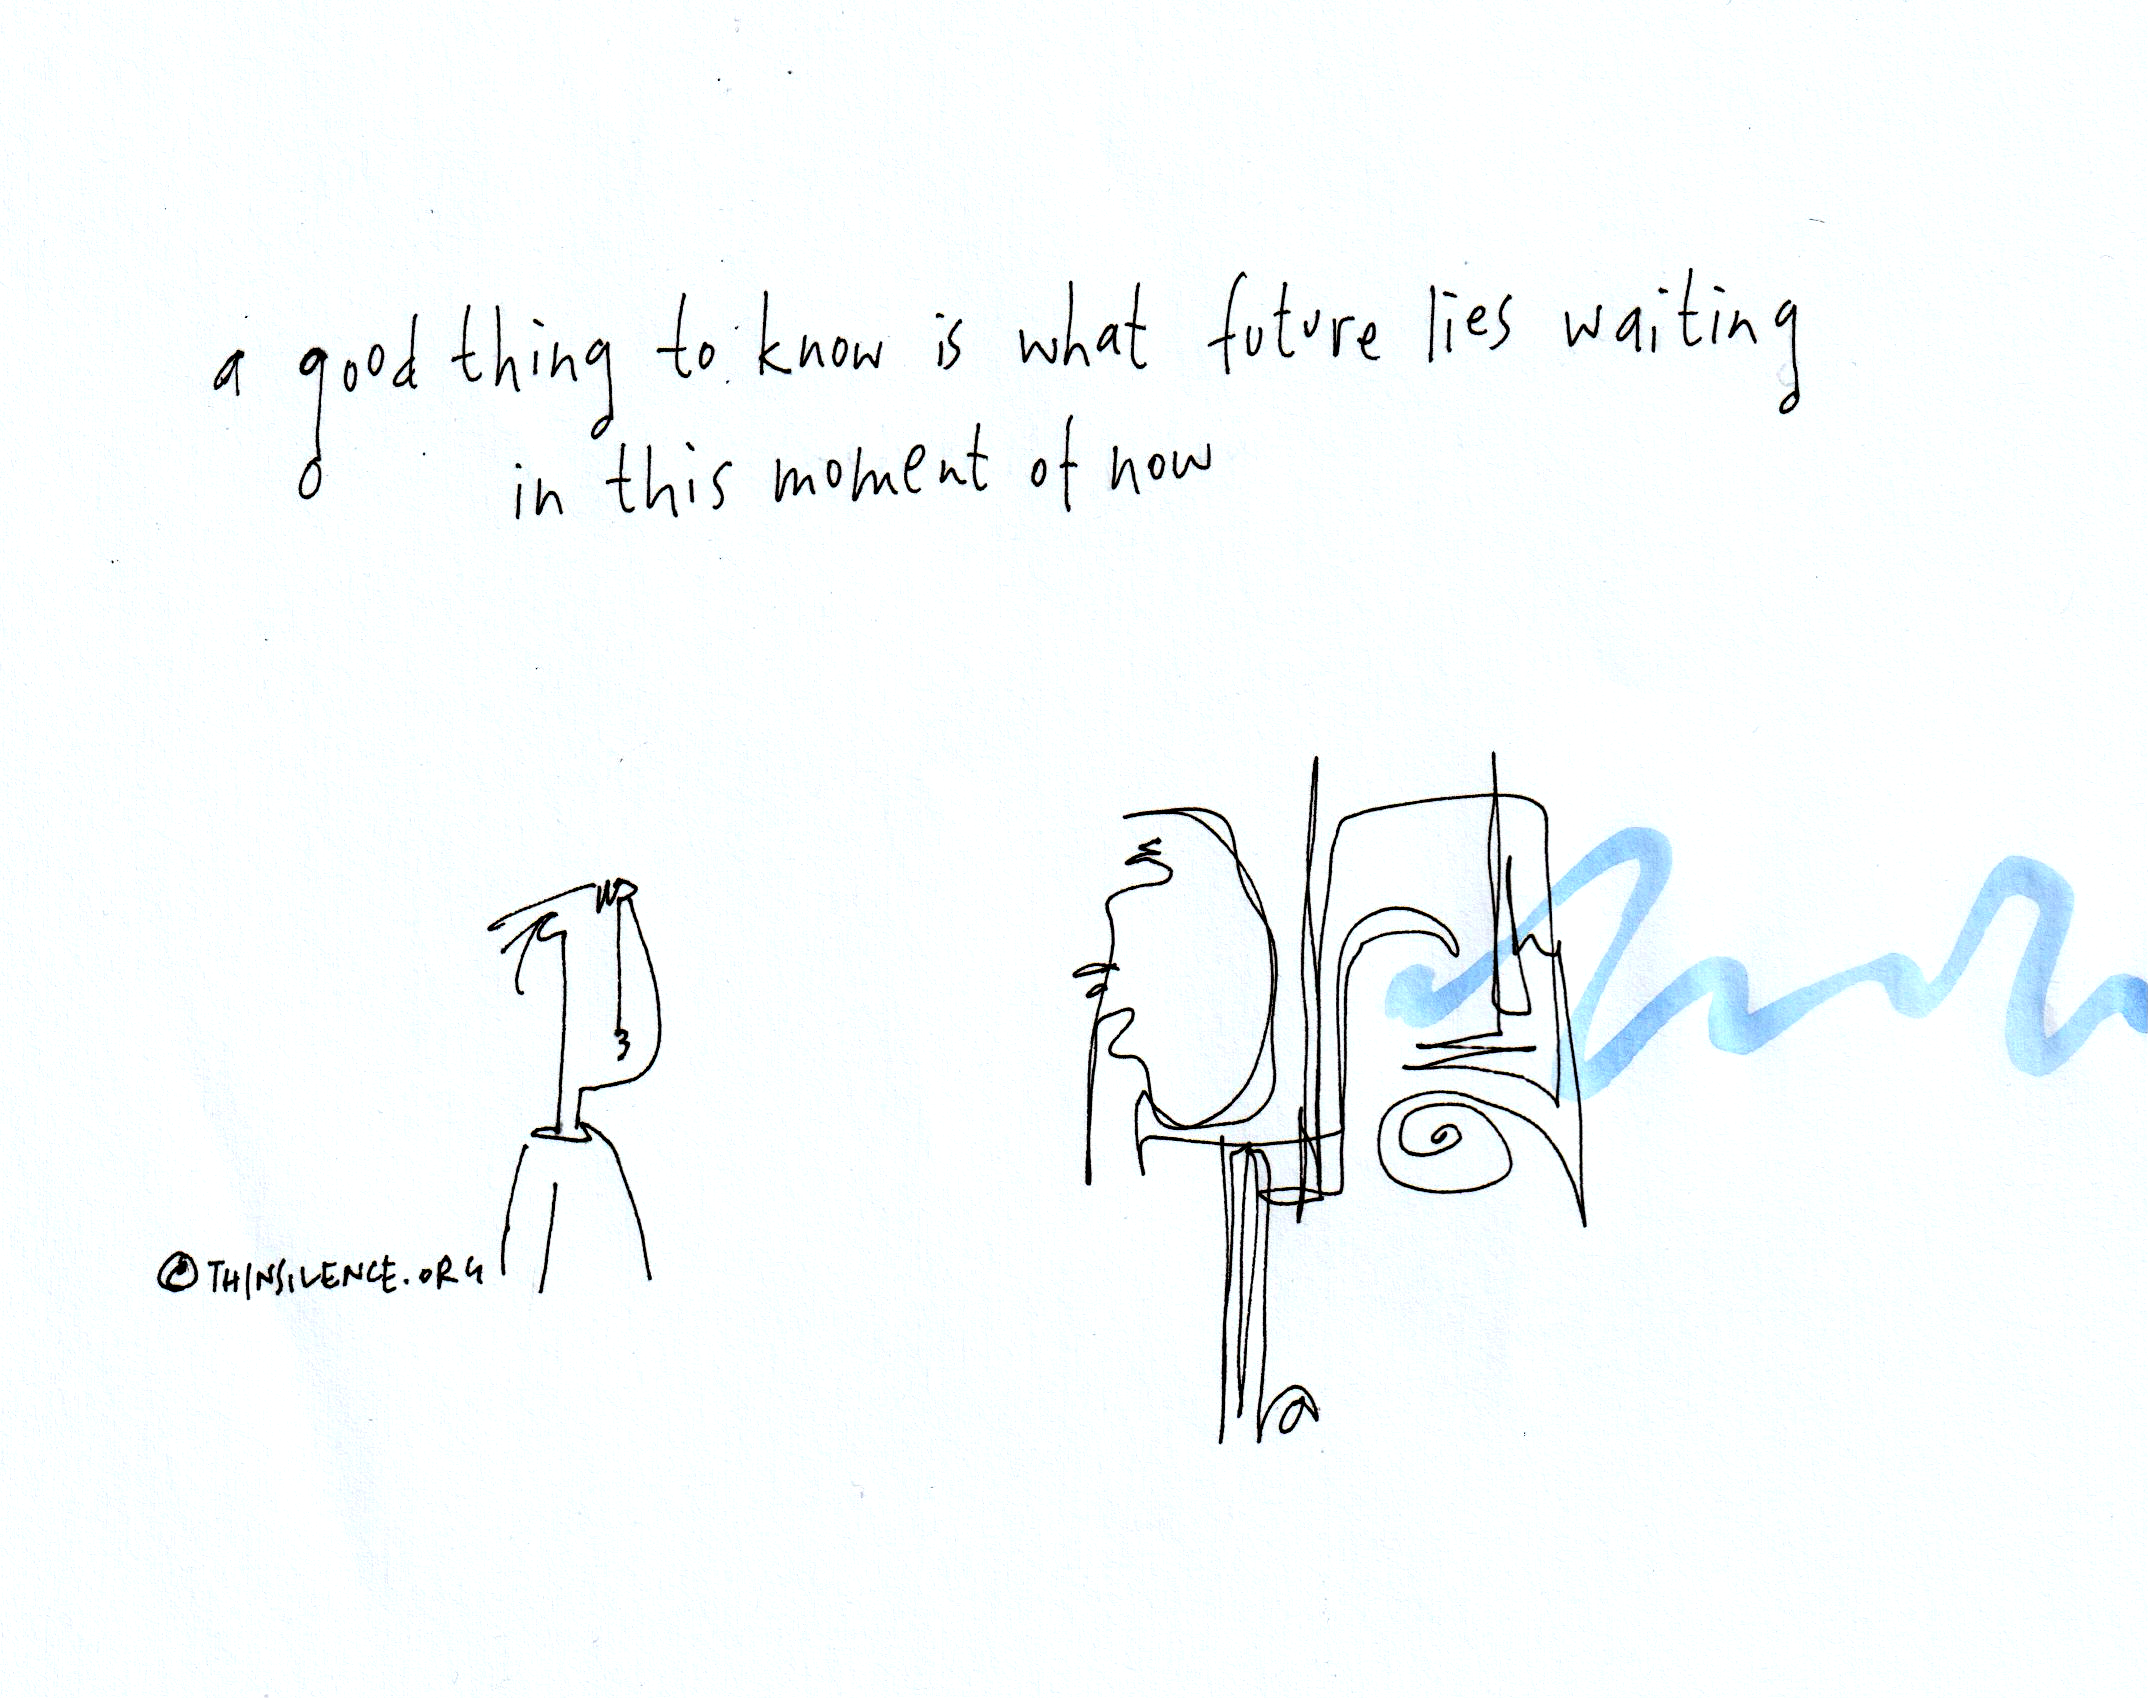 a good thing to know is what future lies waiting
in this moment of now
© THINSILENCE.ORG